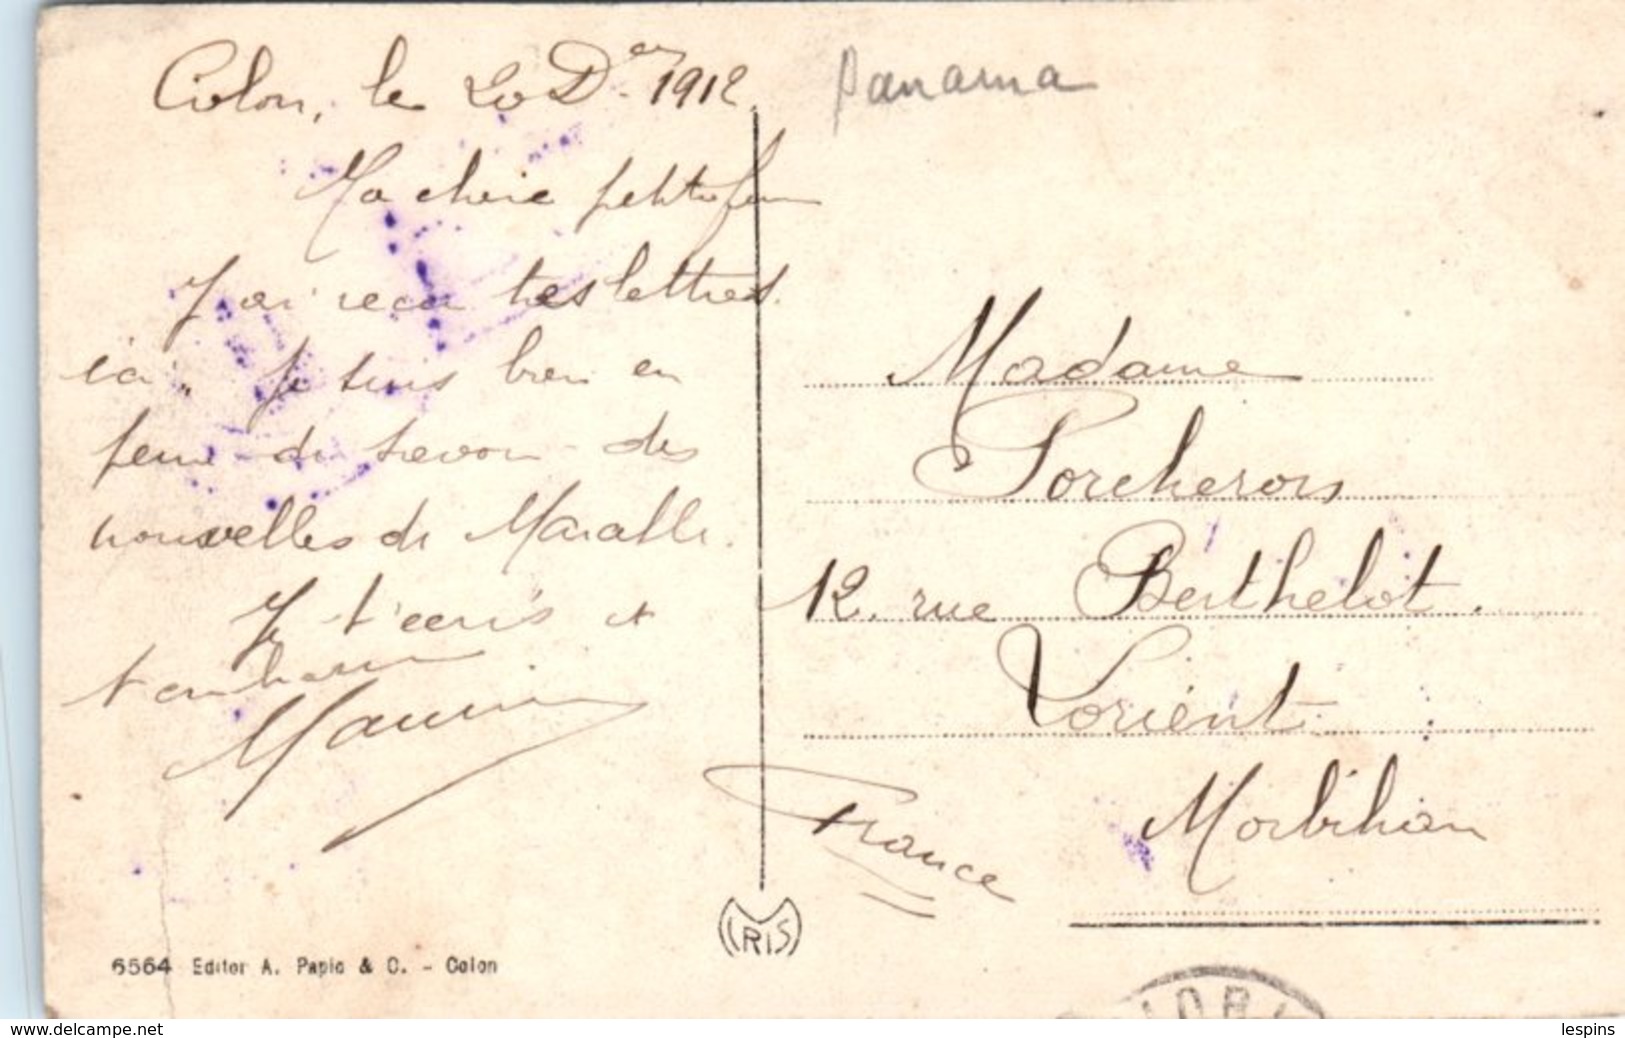 Colon, le 20 Der 1912
Panama
Ma chère petite fem
J'ai reçu tes lettres
ici. Je suis bien en
peine de savoir des
nouvelles de
Je t'écris et
t'embrasse
Madame
Porcheron
12. rue Berthelot.
Lorient
Morbihan
France
IRIS
6564 Editor A. Papio & C. - Colon
LORI
www.delcampe.net
lespins